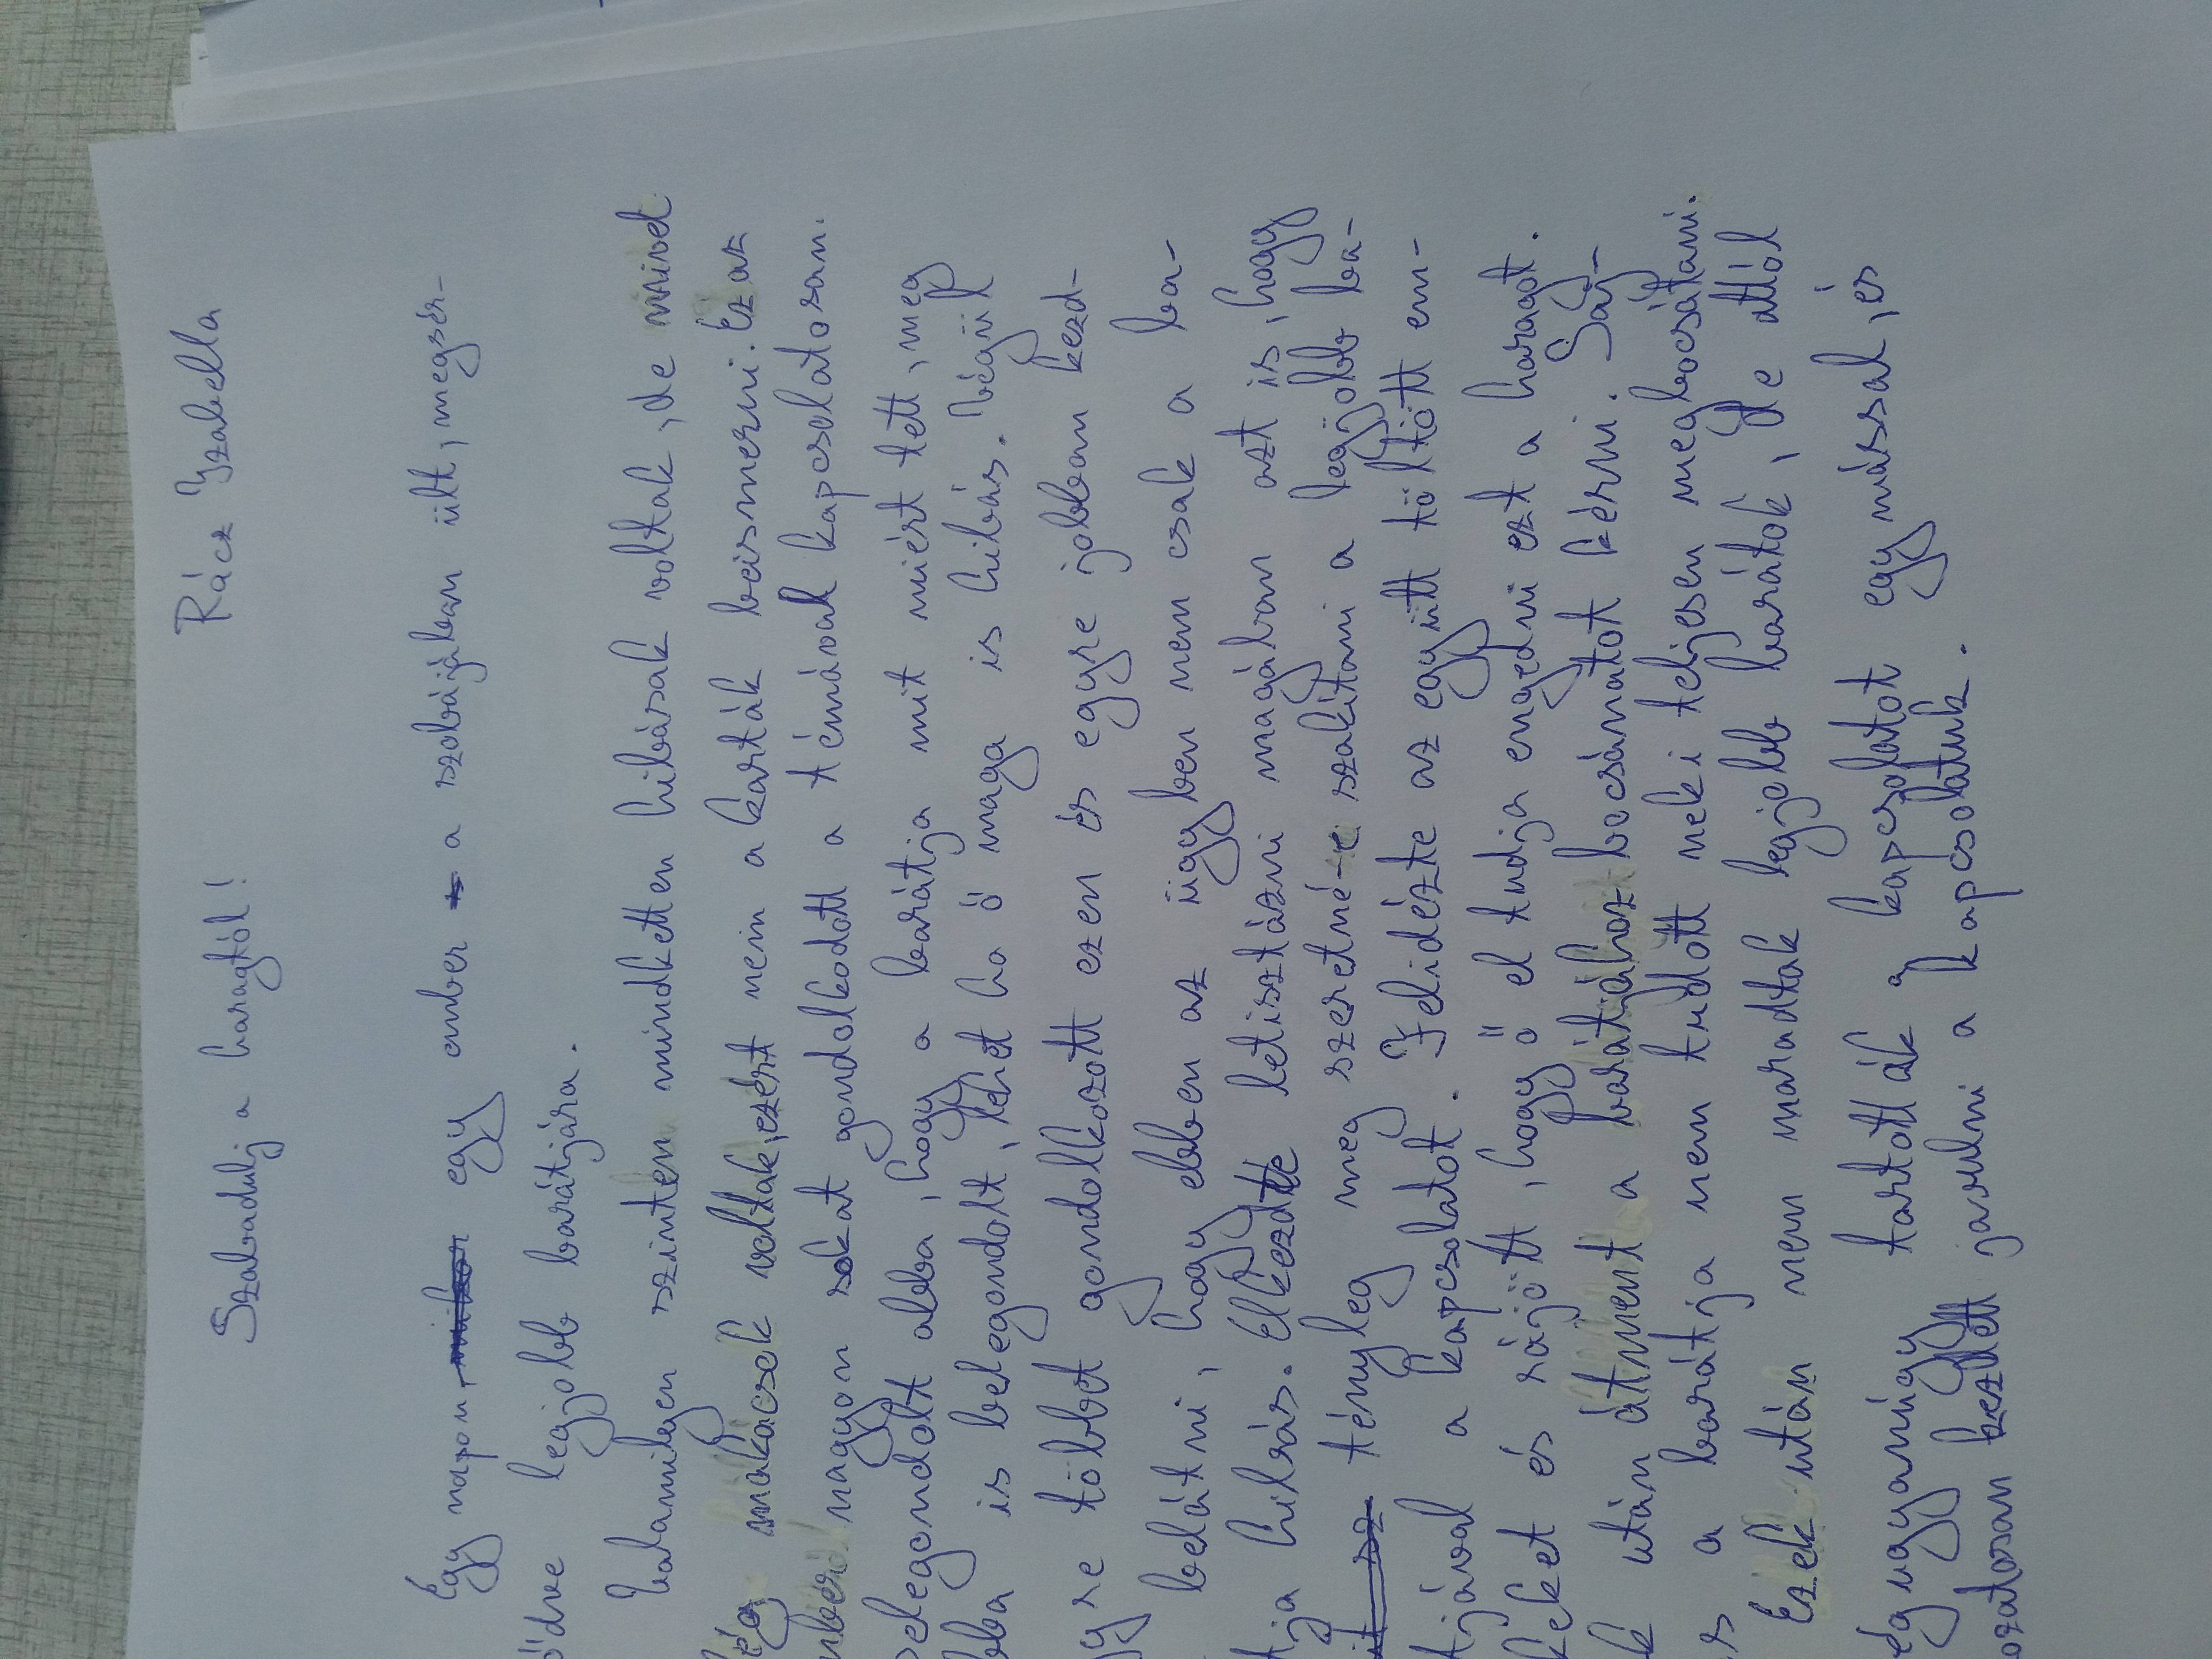 Szabadulj a haragtól! Rácz Izabella
Egy napon egy ember a szobájában ült, megsér-
ődve legjobb barátjára.
Valamilyen szinten mindketten hibásak voltak, de mivel
ég makacsok voltak, ezért nem akarták beismerni. Ez az
mberd nagyon sokat gondolkodott a témával kapcsolatosan.
elegondolt abba, hogy a barátja mit miért tett, meg
bba is belegondolt, lehet ha ő maga is hibás. Végül
gyre többet gondolkozott ezen és egyre jobban kezd-
belátni, hogy ebben az ügyben nem csak a ba-
tja hibás. Elkezdte letisztázni magában azt is, hogy
tényleg meg szeretné-e szakítani a legjobb ba-
tjával a kapcsolatot. Felidézte az együtt töltött em-
keket és rájött, hogy ő el tudja engedni ezt a haragot.
k után átment a barátjához bocsánatot kérni. Saj-
s a barátja nem tudott neki teljesen megbocsátani.
Ezek után nem maradtak legjobb barátok, de attól
égugyanúgy tartották a kapcsolatot egymással, és
ozatosan kezdett javulni a kapcsolatuk.